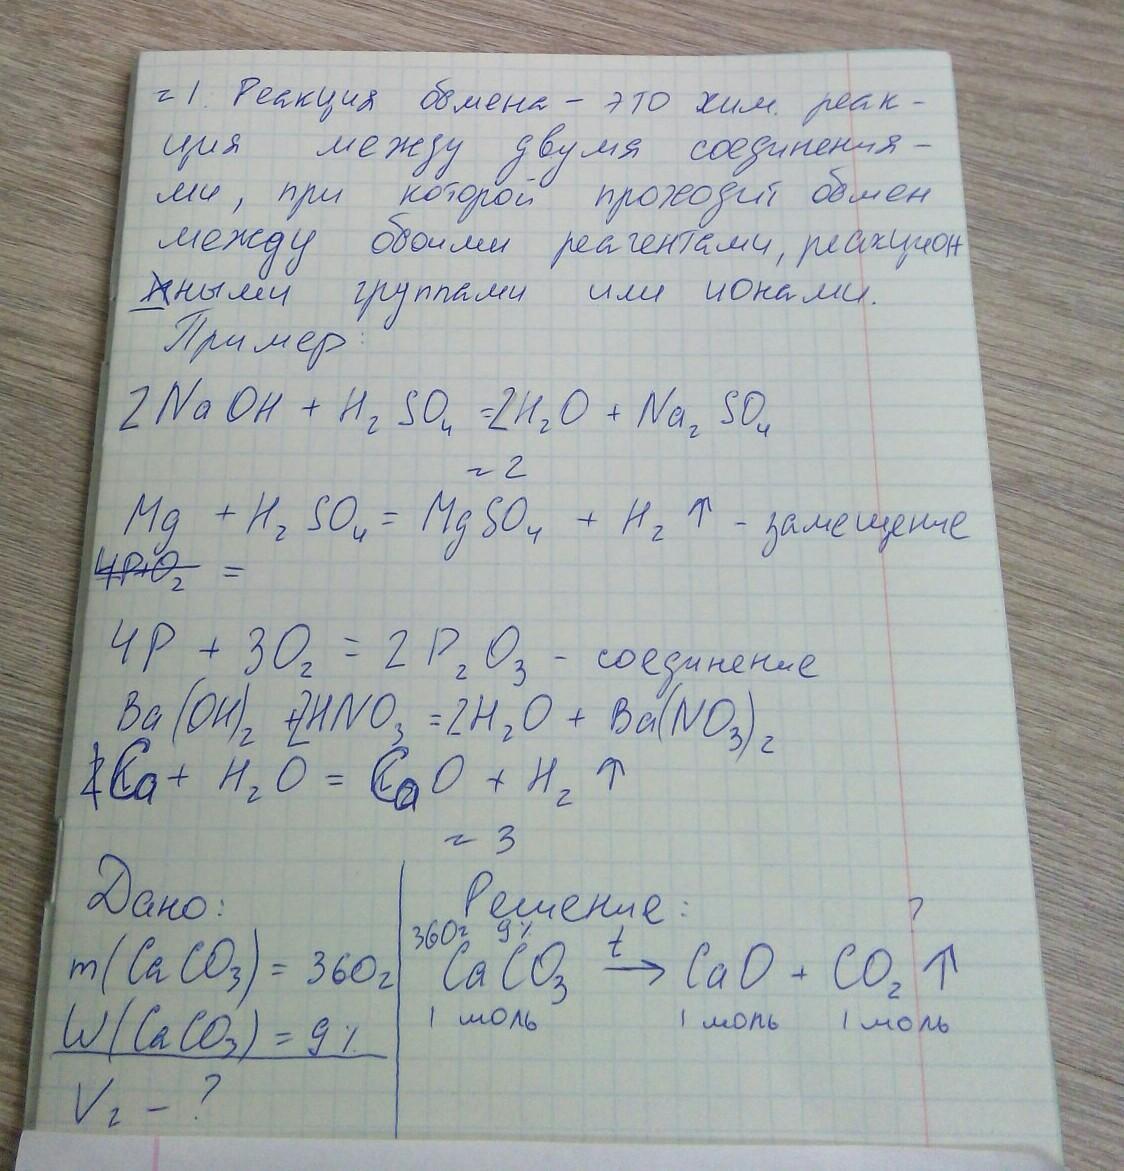 ~1. Реакция обмена – это хим. реак-
ция между двумя соединения-
ми, при которой проходит обмен
между обоими реагентами, реакцион
ными группами или ионами.
Пример:
2NaOH + H₂SO₄ = 2H₂O + Na₂SO₄
~2
Mg + H₂SO₄ = MgSO₄ + H₂↑ - замещение
4P+O₂ =
4P + 3O₂ = 2P₂O₃ - соединение
Ba(OH)₂ + 2HNO₃ = 2H₂O + Ba(NO₃)₂
Ca + H₂O = CaO + H₂↑
~3
Дано:
m(CaCO₃) = 360г
W(CaCO₃) = 9%
V₂ - ?
Решение: ?
360г 9%
CaCO₃ t→ CaO + CO₂↑
1 моль 1 моль 1 моль